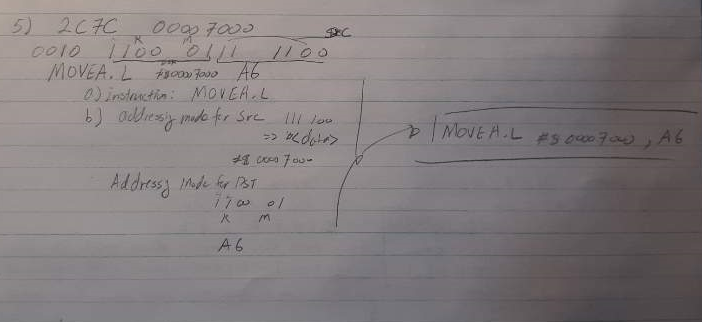 5) 2C7C 00007000
R M SRC
0010 1100 0111 1100
MOVEA.L #$00007000 A6
a) instruction: MOVEA.L
b) addressing mode for Src 111 100
=> #<data>
#$ 00007000
Addressing Mode for DST
1100 01
R M
A6
MOVEA.L #$00007000, A6